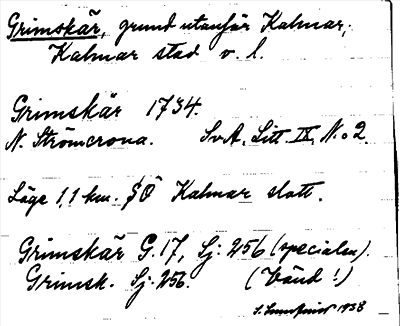 Grimskär, grund utanför Kalmar,
Kalmar stad v. l.
Grimskär 1734.
N. Strömcrona. SvA, Litt IX, No 2.
Läge 1,1 km. SÖ Kalmar slott.
Grimskär G.17, Sj: 256 (specialen).
Grimsk. Sj: 256. (Vänd!)
1938